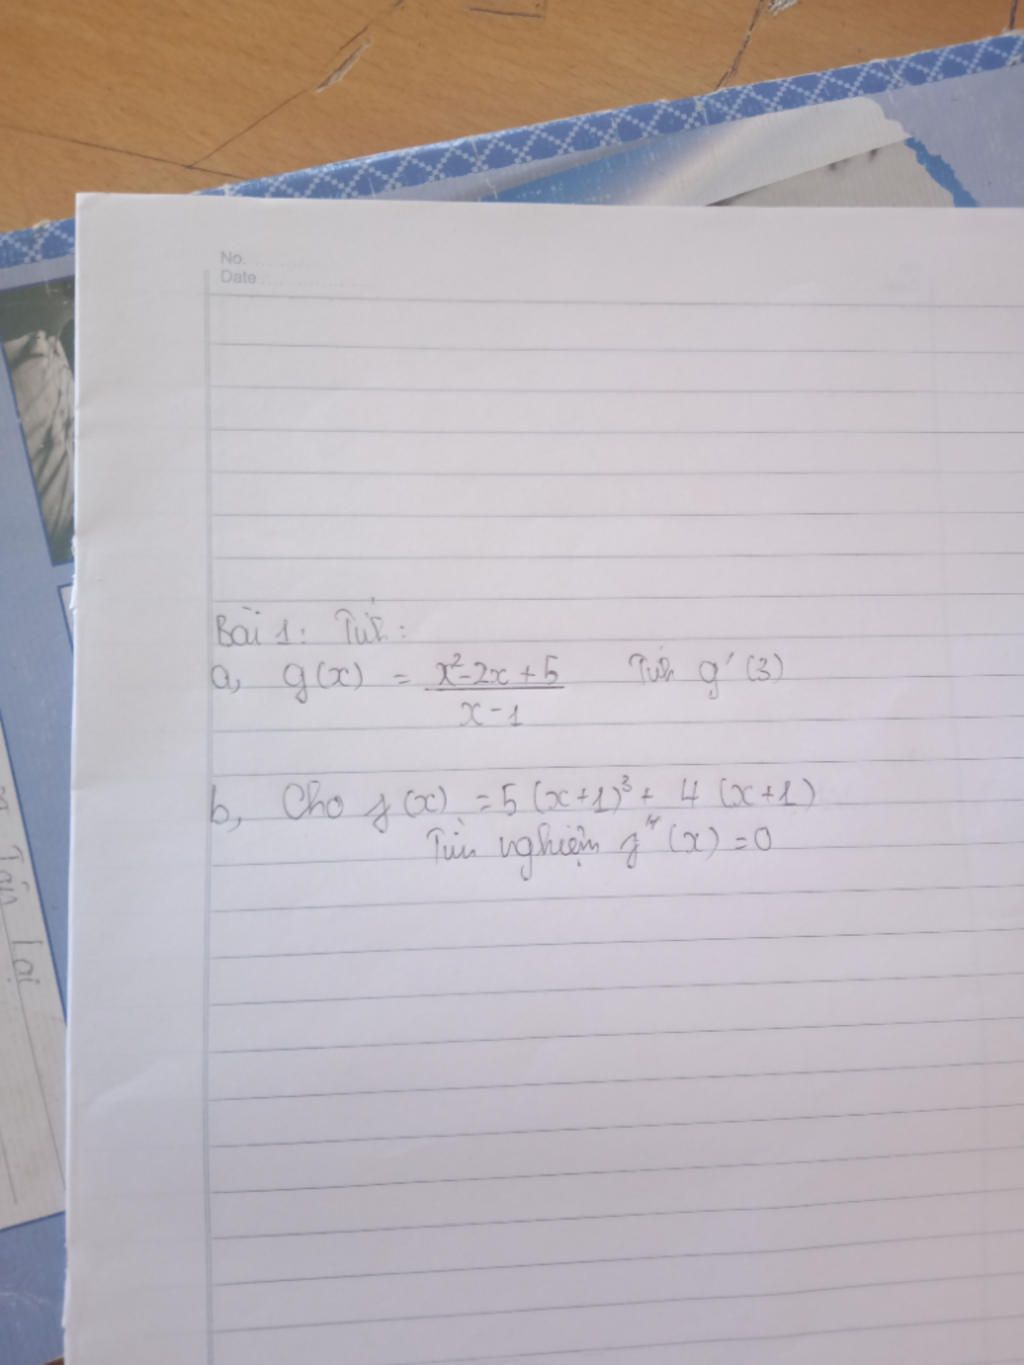 No.
Date
Bài 1: Tính:
a, g(x) = x²-2x+5 / x-1 Tính g'(3)
b, Cho f(x) = 5(x+1)³ + 4(x+1)
Tìm nghiệm f''(x) = 0
Lại